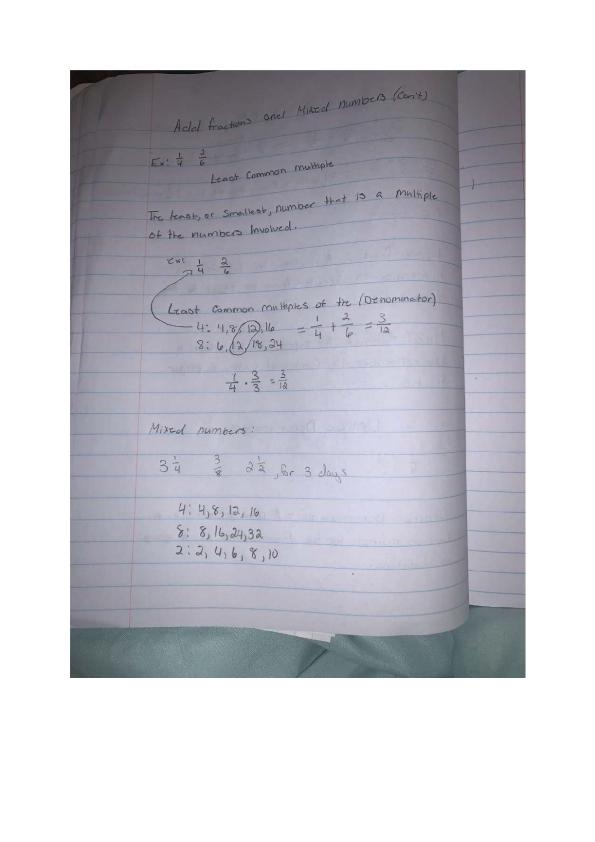 Add fractions and Mixed numbers (Con't)
Ex: 1/4 2/6
Least Common multiple
The least, or smallest, number that is a multiple
of the numbers involved.
Ex: 1/4 2/6
Least Common multiples of the (Denominator)
4: 4,8,12,16 = 1/4 + 2/6 = 3/12
8: 6,12,18,24
1/4 · 3/3 = 3/12
Mixed numbers:
3 1/4 3/8 2 1/2, for 3 days
4: 4,8,12,16
8: 8,16,24,32
2: 2,4,6,8,10